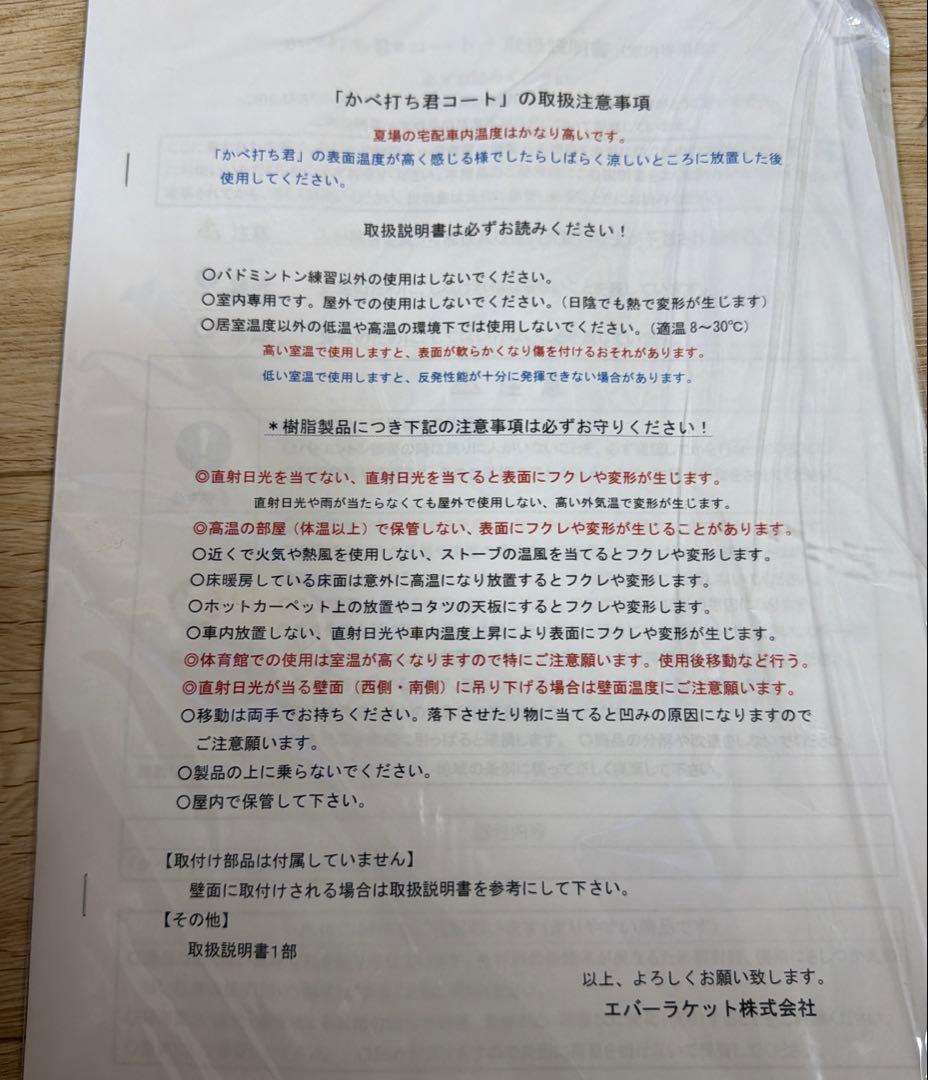 「かべ打ち君コート」の取扱注意事項
夏場の宅配車内温度はかなり高いです。
「かべ打ち君」の表面温度が高く感じる様でしたらしばらく涼しいところに放置した後
使用してください。
取扱説明書は必ずお読みください！
○バドミントン練習以外の使用はしないでください。
○室内専用です。屋外での使用はしないでください。（日陰でも熱で変形が生じます）
○居室温度以外の低温や高温の環境下では使用しないでください。（適温8～30℃）
高い室温で使用しますと、表面が軟らかくなり傷を付けるおそれがあります。
低い室温で使用しますと、反発性能が十分に発揮できない場合があります。
＊樹脂製品につき下記の注意事項は必ずお守りください！
◎直射日光を当てない、直射日光を当てると表面にフクレや変形が生じます。
直射日光や雨が当たらなくても屋外で使用しない、高い外気温で変形が生じます。
◎高温の部屋（体温以上）で保管しない、表面にフクレや変形が生じることがあります。
○近くで火気や熱風を使用しない、ストーブの温風を当てるとフクレや変形します。
○床暖房している床面は意外に高温になり放置するとフクレや変形します。
○ホットカーペット上の放置やコタツの天板にするとフクレや変形します。
○車内放置しない、直射日光や車内温度上昇により表面にフクレや変形が生じます。
◎体育館での使用は室温が高くなりますので特にご注意願います。使用後移動など行う。
◎直射日光が当る壁面（西側・南側）に吊り下げる場合は壁面温度にご注意願います。
○移動は両手でお持ちください。落下させたり物に当てると凹みの原因になりますので
ご注意願います。
○製品の上に乗らないでください。
○屋内で保管して下さい。
【取付け部品は付属していません】
壁面に取付けされる場合は取扱説明書を参考にして下さい。
【その他】
取扱説明書1部
以上、よろしくお願い致します。
エバーラケット株式会社